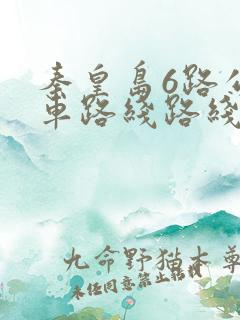 秦皇岛6路公
车路线路线
九命野猫本尊
未经同意禁止转载